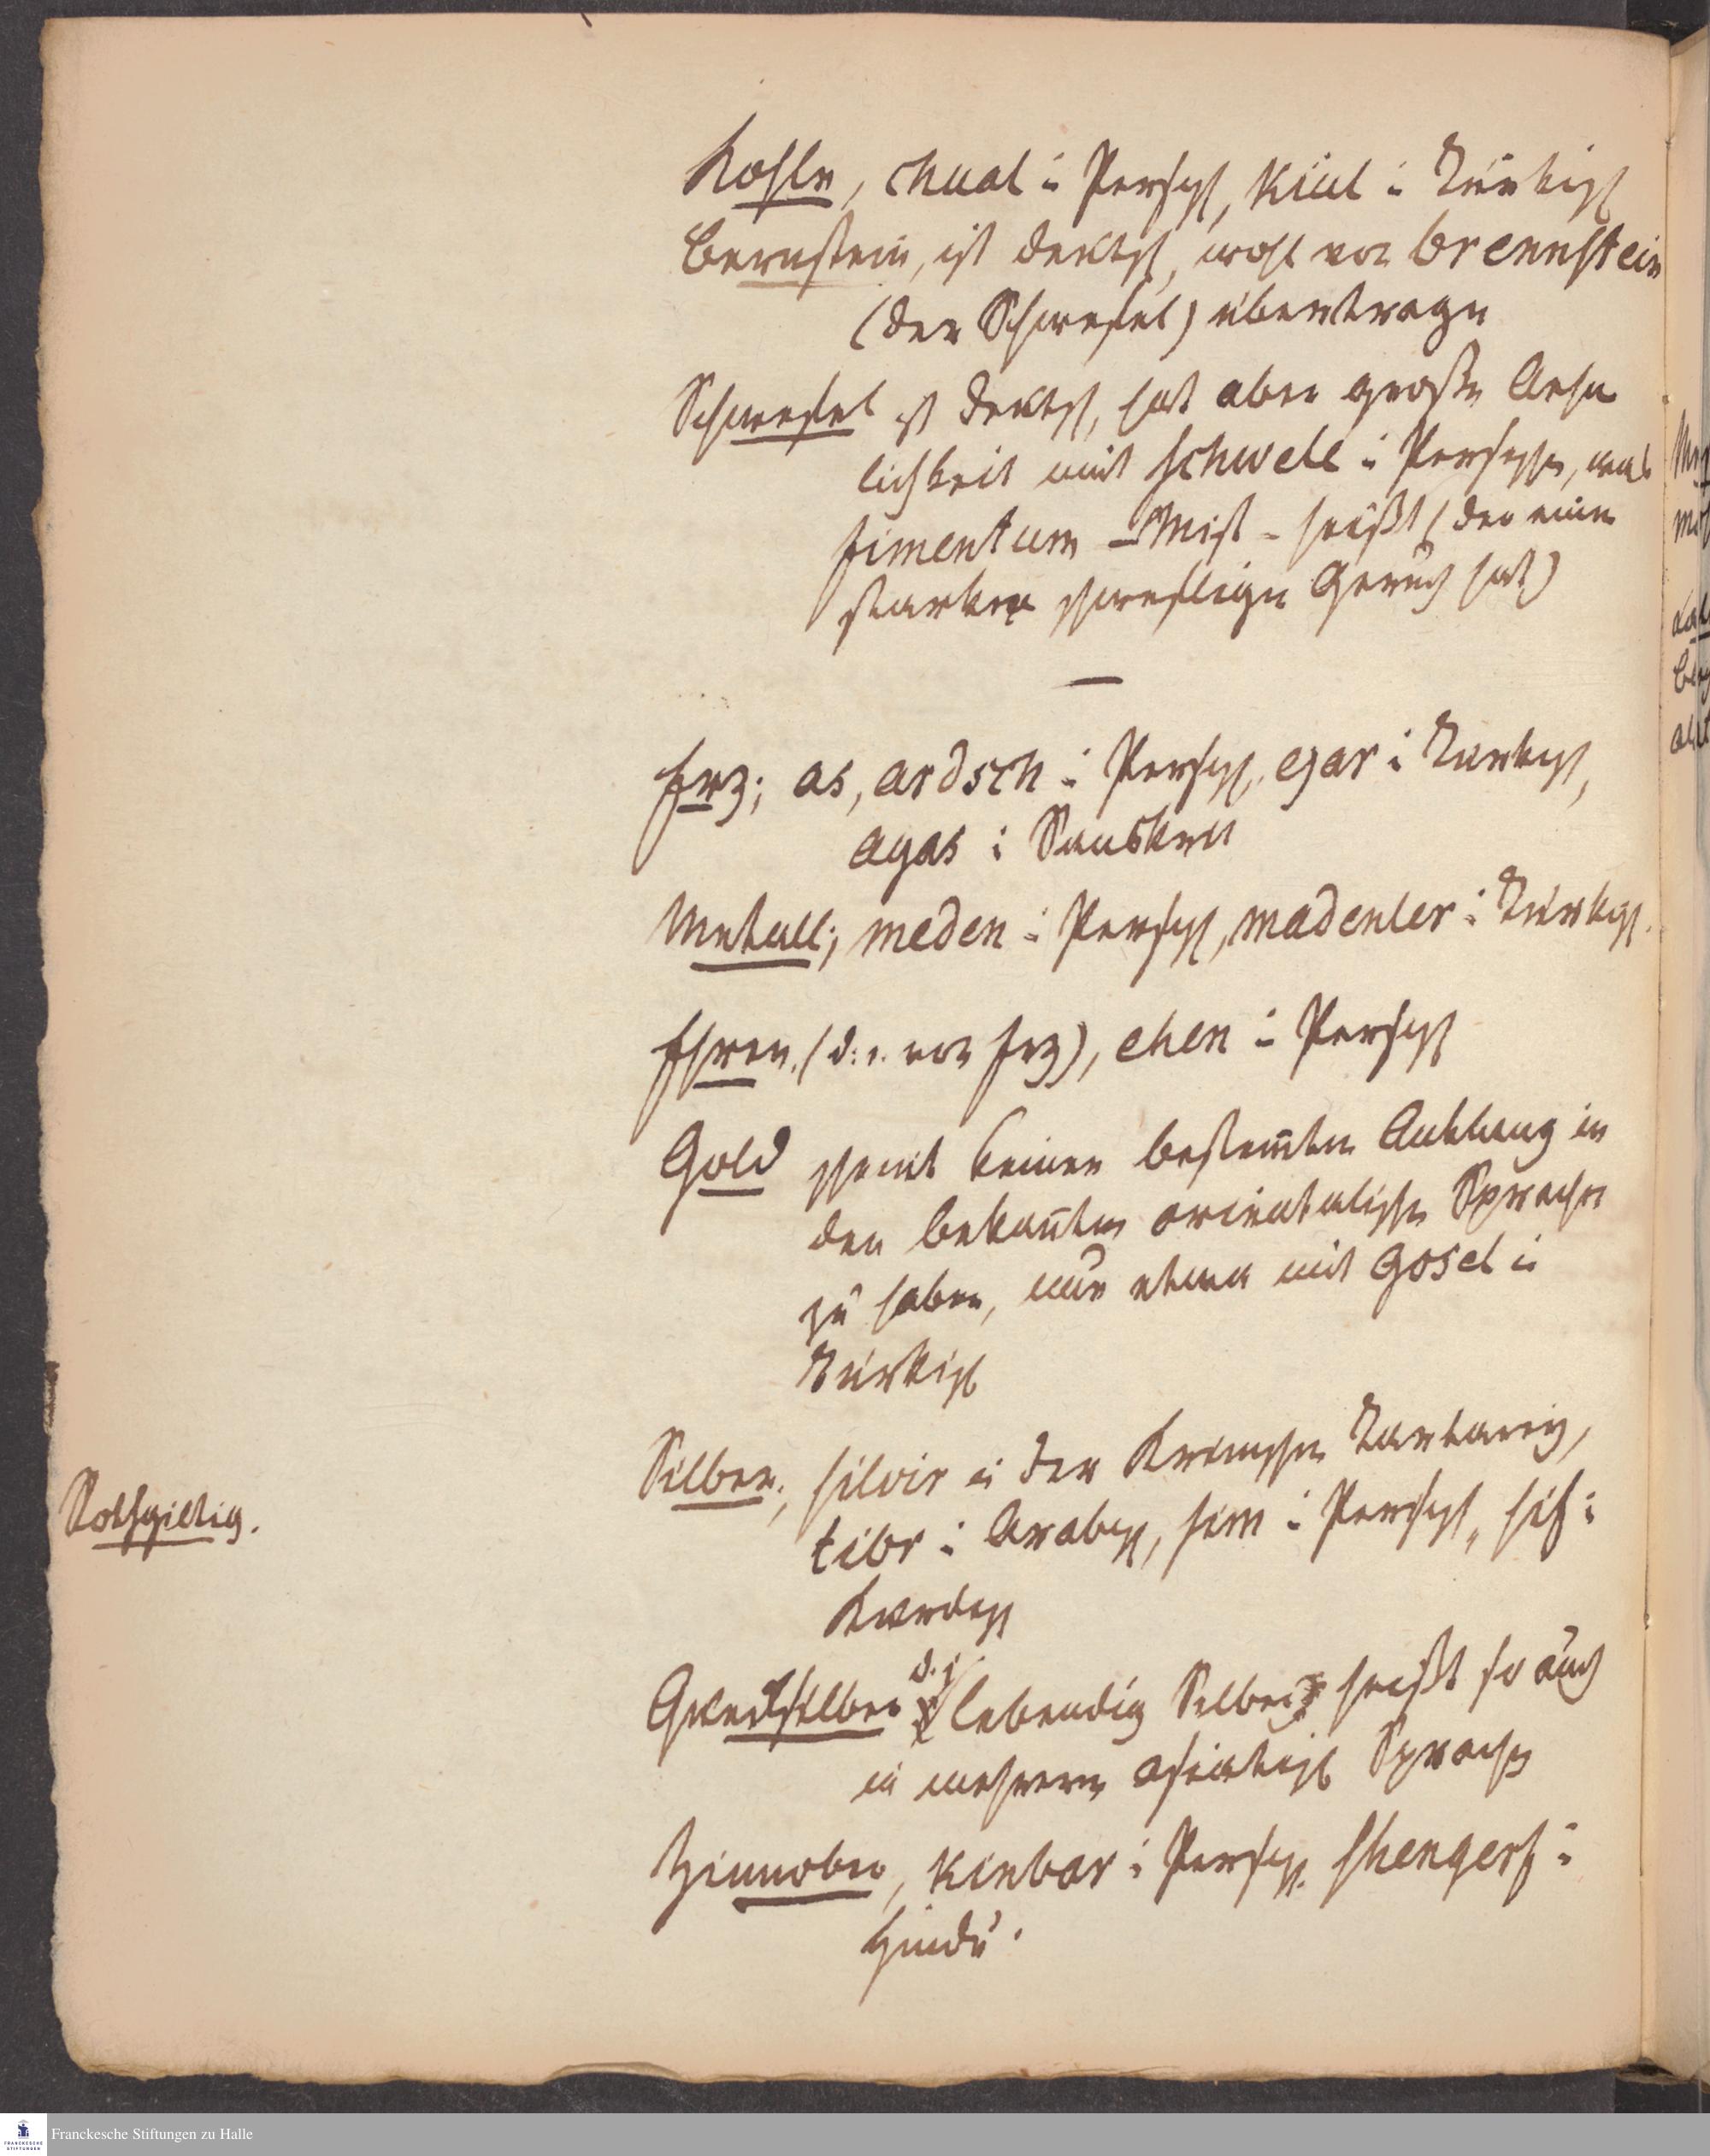 Kohle, chual i Persisch, Kiul i Türkisch
Bernstein, ist deutsch, wohl von brennstein
(der Schwefel) übertragen
Schwefel ist deutsch, hat aber große Aehn
lichkeit mit schwell i Persischen, was
fimentum - Mist - heißt (der einen
starken schwefligen Geruch hat)
—
Erz; as, ardsch i Persisch, ejar i Türkisch,
ayas i Sanskrit
Metall; meden i Persisch, madenler i Türkisch.
Ehren. (d. i. von Erz), ehen i Persisch
Gold scheint keinen bestim̄ten Anklang in
den bekan̄ten orientalischen Sprachen
zu haben, nur etwa mit gosel i
Türkisch
Silber; silvir in der Krimschen Tartarey,
Rothgiltig.
tibr i Arabisch, sim i Persisch, sif i
Kurdisch
Quecksilber d. i. lebendig Silber heißt so auch
in mehreren asiatisch Sprachen
Zinnober, kinbar i Persisch. shengerf i
Hindu.
Franckesche Stiftungen zu Halle